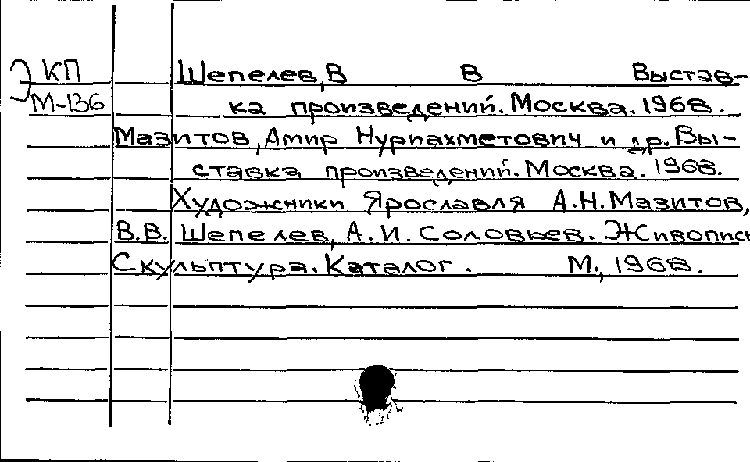 Э КП Шепелев, В В Выстав-
М-136 ка произведений. Москва. 1968.
Мазитов, Амир Нурпахметович и др. Вы-
ставка произведений. Москва. 1968.
Художники Ярославля А.Н. Мазитов,
В.В. Шепелев, А.И. Соловьев. Живопись
Скульптура. Каталог. М., 1968.